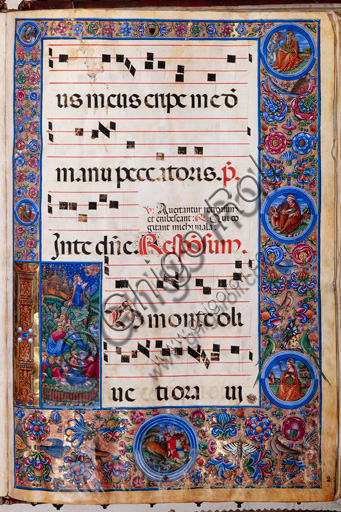 us meus eripe me dō
manu peccatoris. p̄.
V. Avertantur retrorsum
et erubescant: Qui co
gitant michi mala.
In te dn̄e. Responsum.
monte oli
ve ti ora vi
2